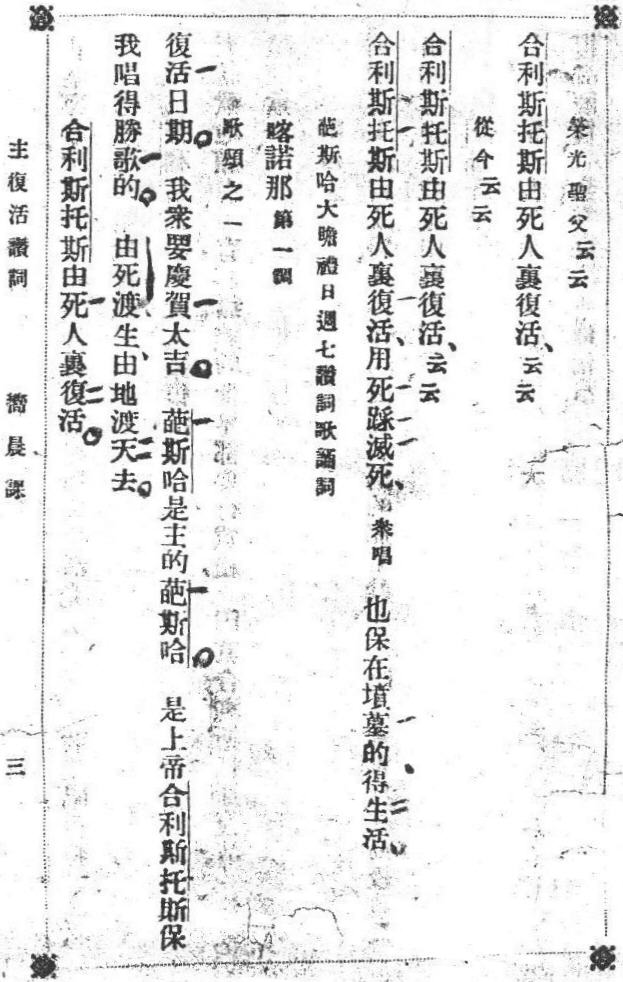 榮光聖父云云
合利斯托斯由死人裏復活、云云
從今云云
合利斯托斯由死人裏復活、云云
合利斯托斯由死人裏復活、用死踩滅死、衆唱 也保在墳墓的得生活、
葩斯哈大瞻禮日週七讚詞歌誦詞
喀諾那 第一調
歌頌之一
復活日期。 我衆要慶賀太吉。 葩斯哈是主的葩斯哈。 是上帝合利斯托斯保
我唱得勝歌的。 由死渡生、由地渡天去。
合利斯托斯由死人裏復活。
主復活讚詞 嚮晨課 三